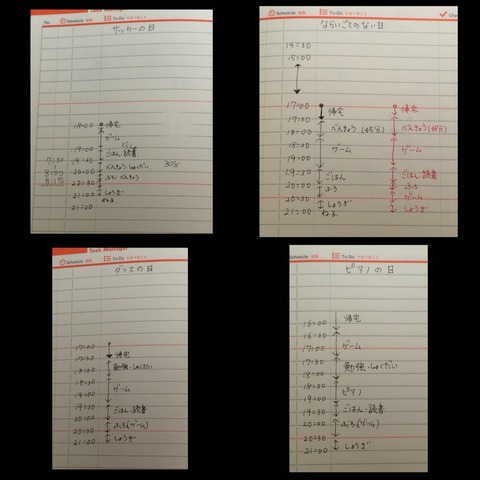 Task Manager
No.
Schedule
To-Do
サッカーの日
18:00 帰宅
ゲーム
19:00
19:30 ごはん・読書
20:00 べんきょう・しゅくだい 30分
20:30 ふろ・べんきょう
21:00 しょうぎ
ねる
21:30
7:30
8:00
8:15
Schedule
To-Do
Che
ならいごとのない日
14:30
15:00
17:00 帰宅 帰宅
17:30
18:00 べんきょう (45分) べんきょう(45分)
18:30 ゲーム ゲーム
19:00
19:30 ごはん ごはん・読書
20:00 ふろ ふろ
20:30 ゲーム
しょうぎ しょうぎ
21:00 ねる
Task Manager
Schedule
To-Do
ダンスの日
17:00
17:30 帰宅
18:00 勉強・しゅくだい
18:30
19:00 ゲーム
19:30 ごはん・読書
20:00
20:30 ふろ(ゲーム)
21:00 しょうぎ
Schedule
To-Do
ピアノの日
16:00 帰宅
16:30
17:00 ゲーム
17:30 勉強・しゅくだい
18:00
18:30 ピアノ
19:00
19:30 ごはん・読書
20:00 ふろ(ゲーム)
20:30
21:00 しょうぎ